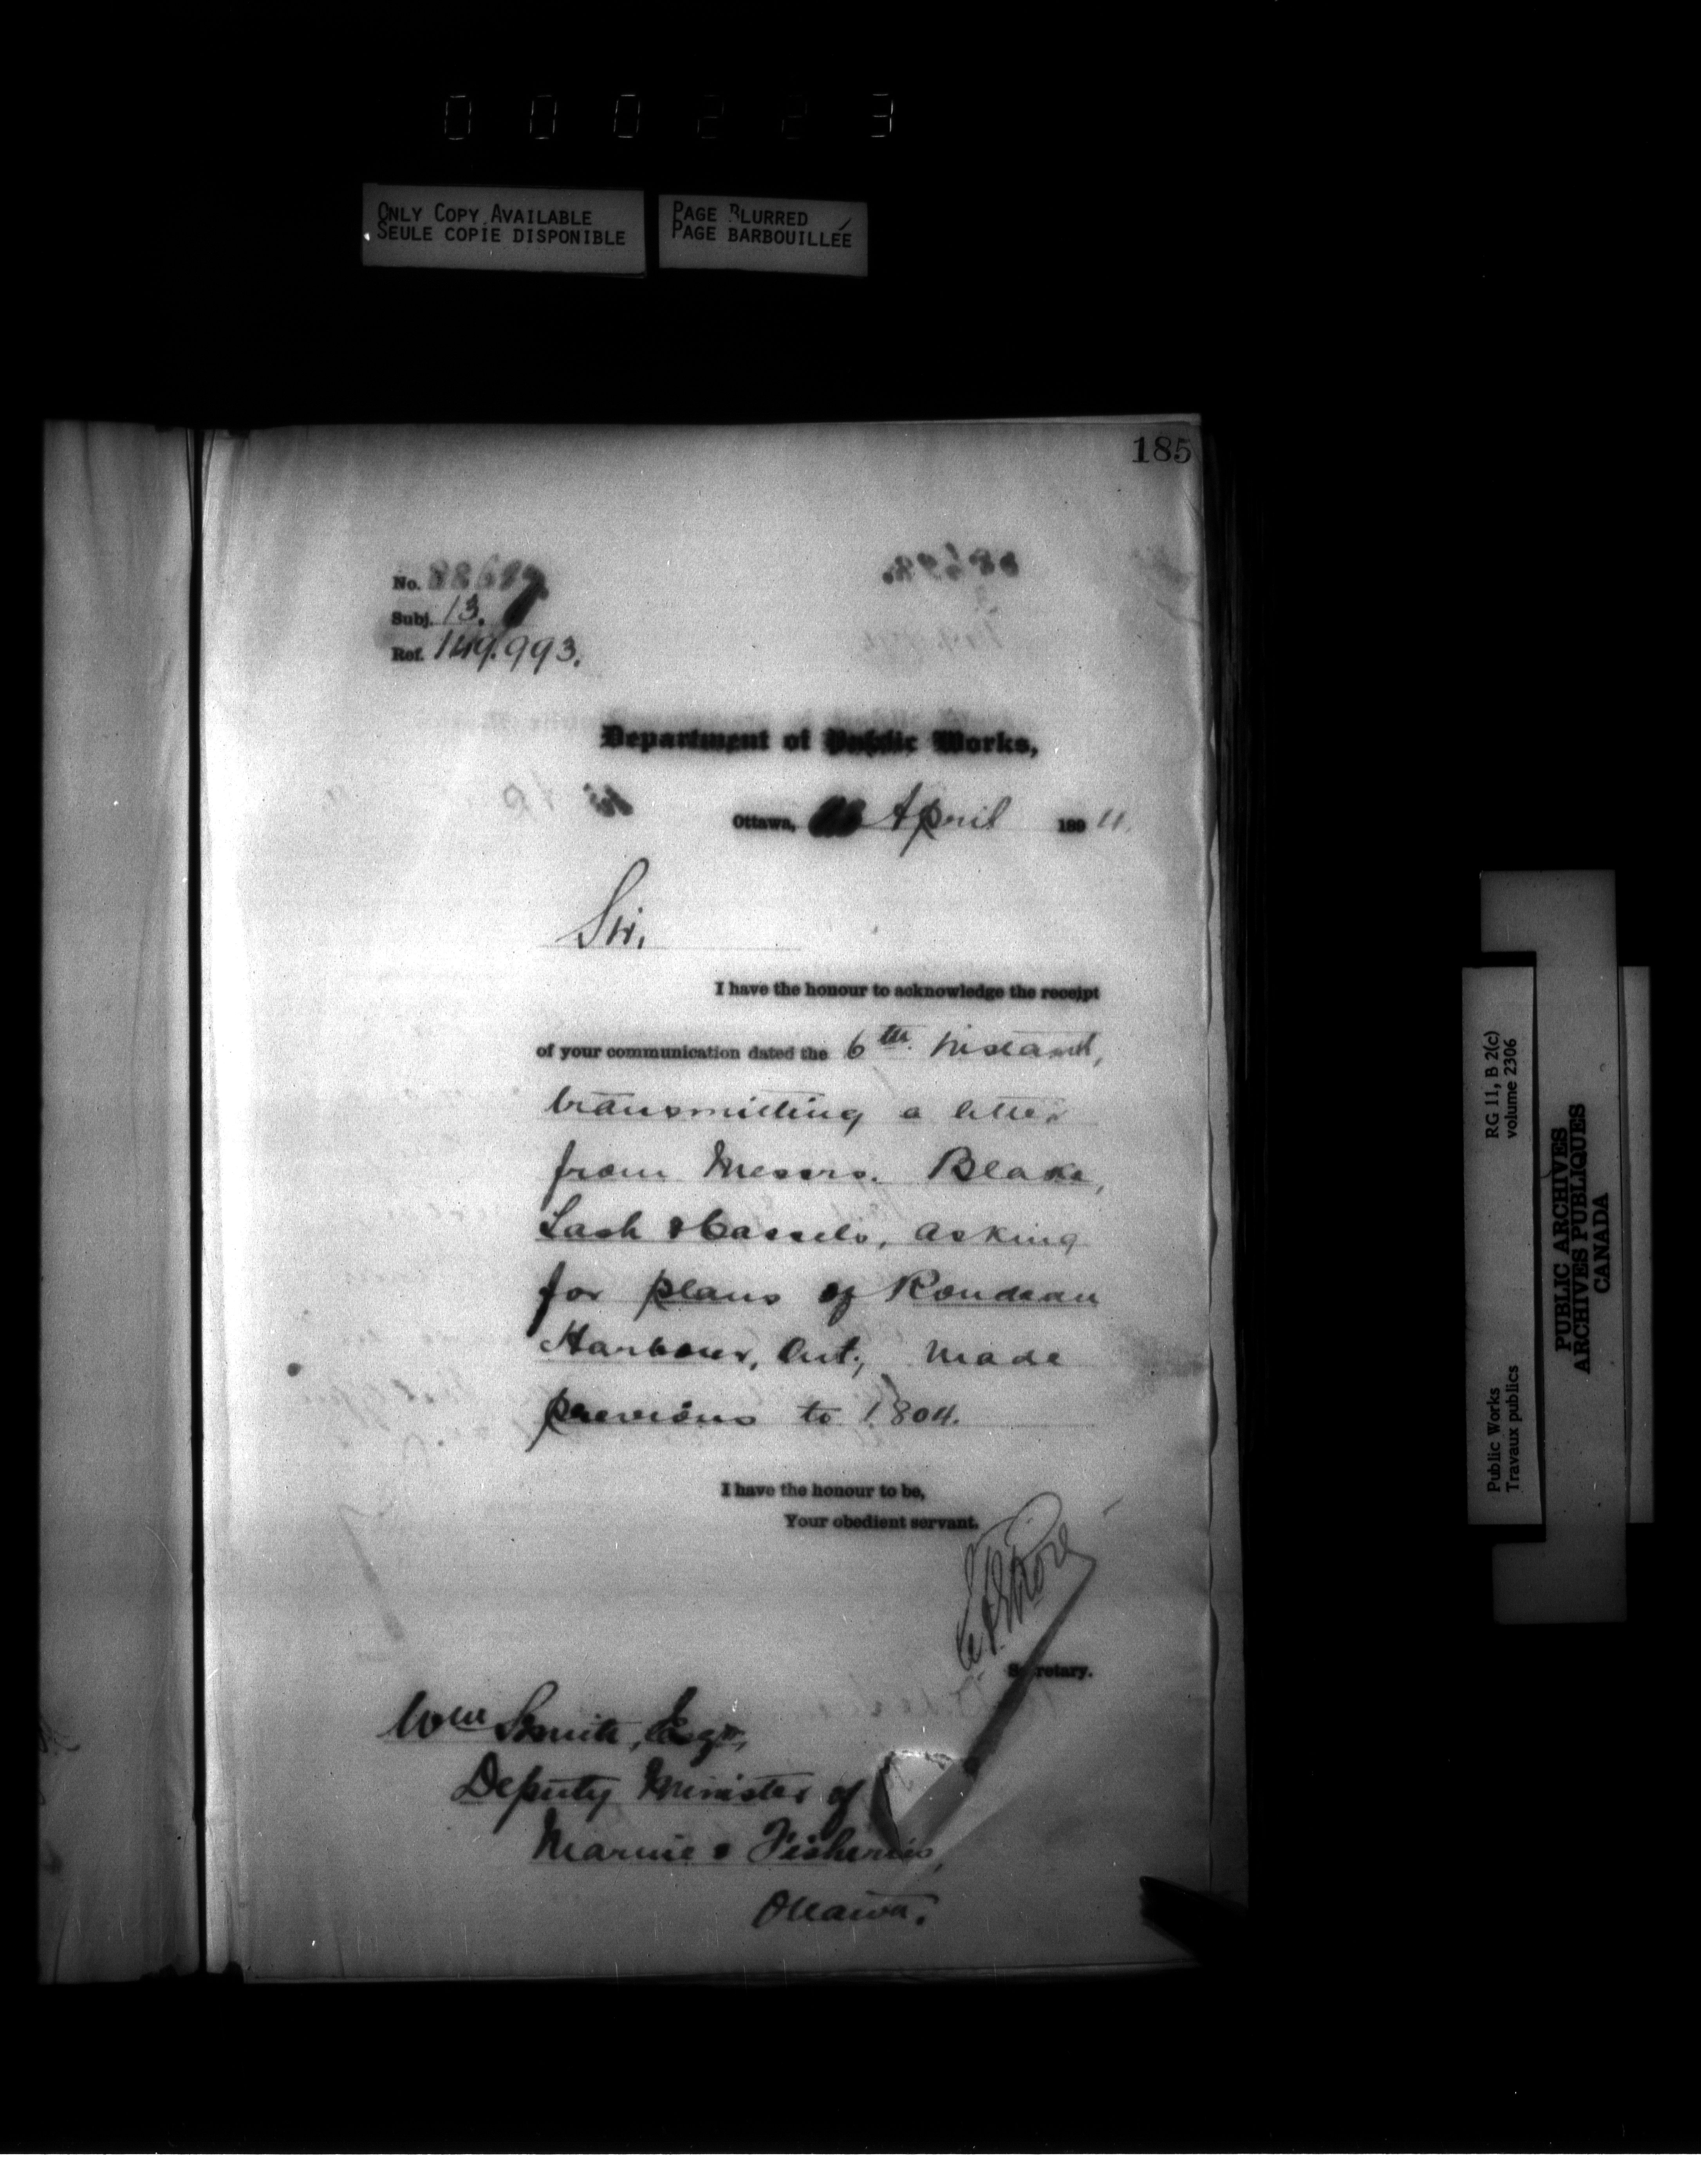 000223
ONLY COPY AVAILABLE
SEULE COPIE DISPONIBLE
PAGE BLURRED
PAGE BARBOUILLÉE
185
No.
Subj. 13.
Ref. 149.993.
Department of Public Works,
Ottawa, April 189
Sir,
I have the honour to acknowledge the receipt
of your communication dated the 6th. instant,
transmitting a letter
from Messrs. Blake,
Lash & Cassels, asking
for plans of Rondeau
Harbour, Ont., made
previous to 1804.
I have the honour to be,
Your obedient servant.
Secretary.
Wm Smith, Esqr,
Deputy Minister of
Marine & Fisheries,
Ottawa.
RG 11, B 2(c)
volume 2306
Public Works
Travaux publics
PUBLIC ARCHIVES
ARCHIVES PUBLIQUES
CANADA